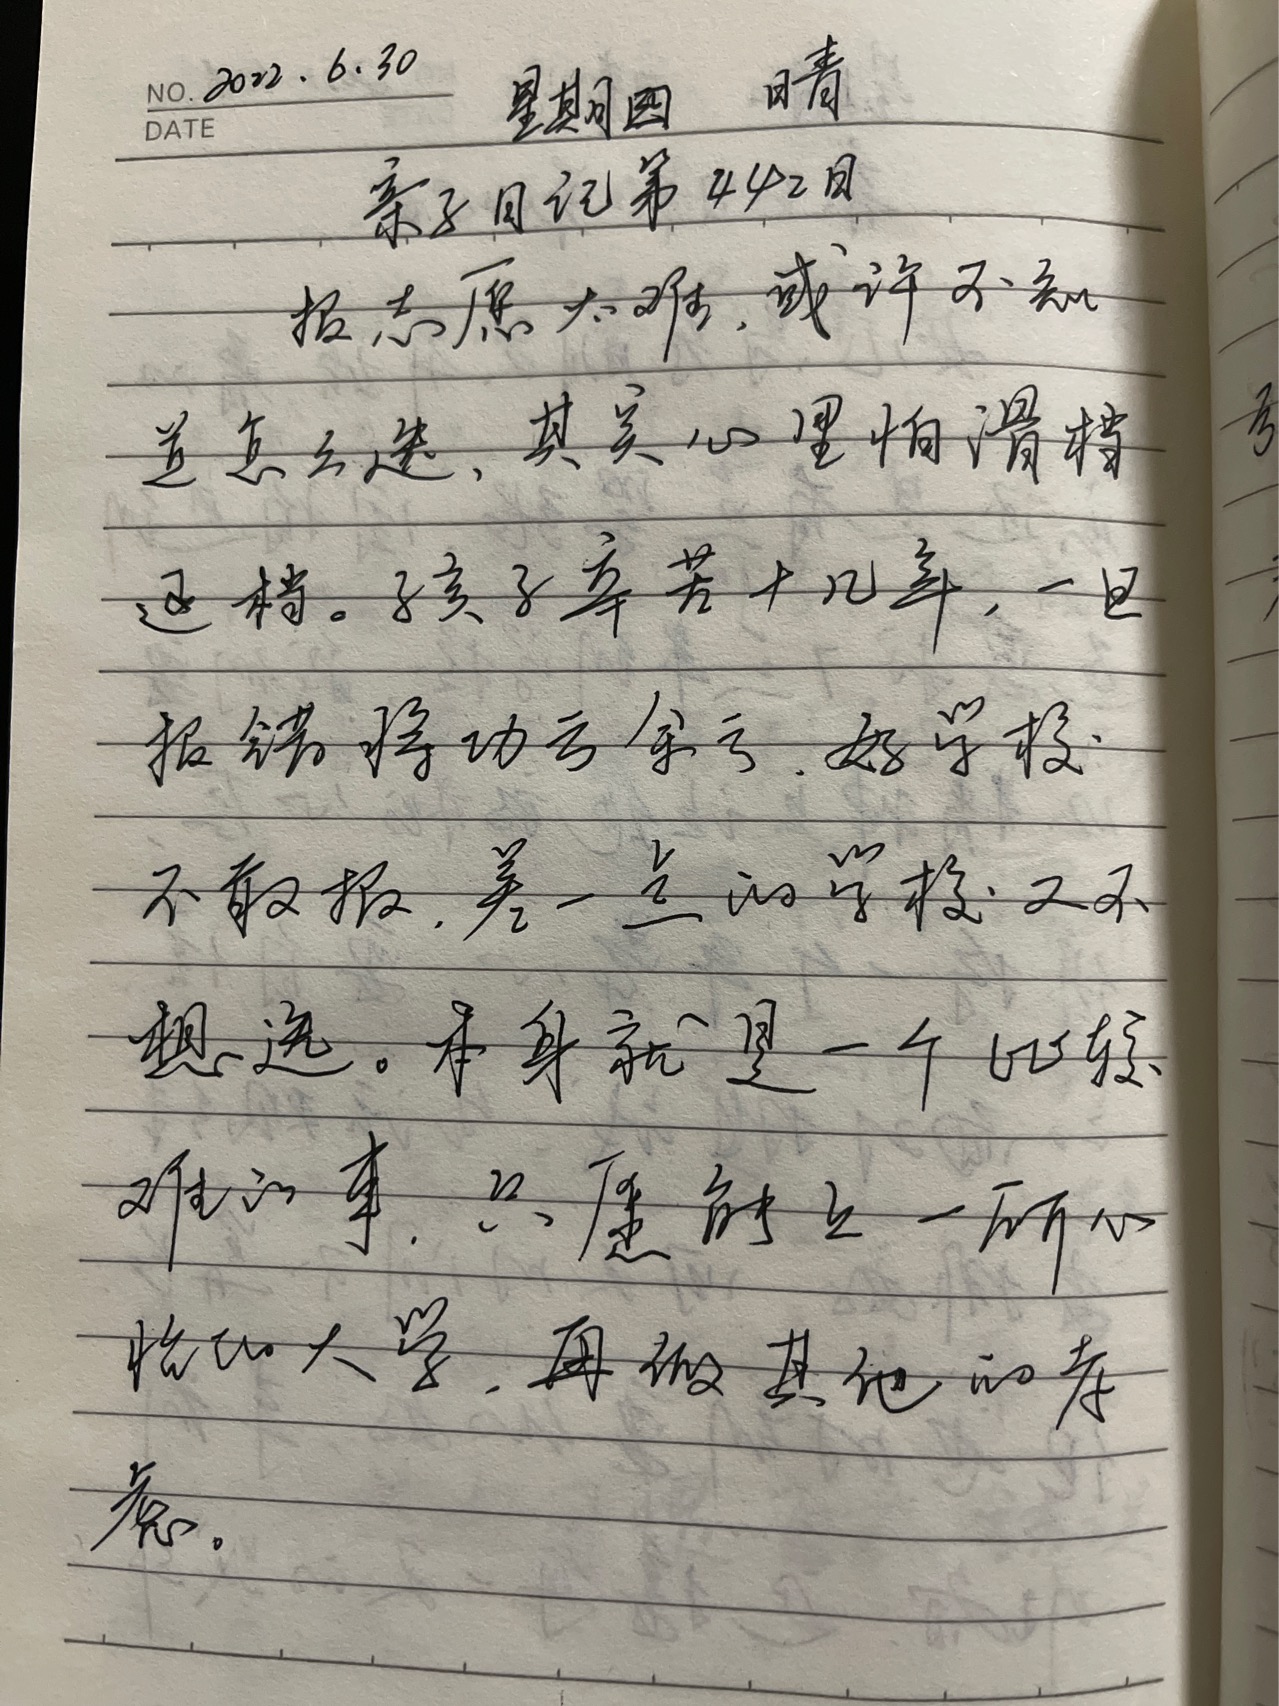 NO. 2022.6.30
DATE
星期四 晴
亲子日记第442日
报志愿太难,或许不知
道怎么选、其实心里怕滑档
退档。孩子辛苦十几年,一旦
报错将功亏
好学校
不敢报,差一点的学校又不
想选。本身就是一个比较
难的事,只愿能上一所心
怡的大学,再做其他的考
虑。